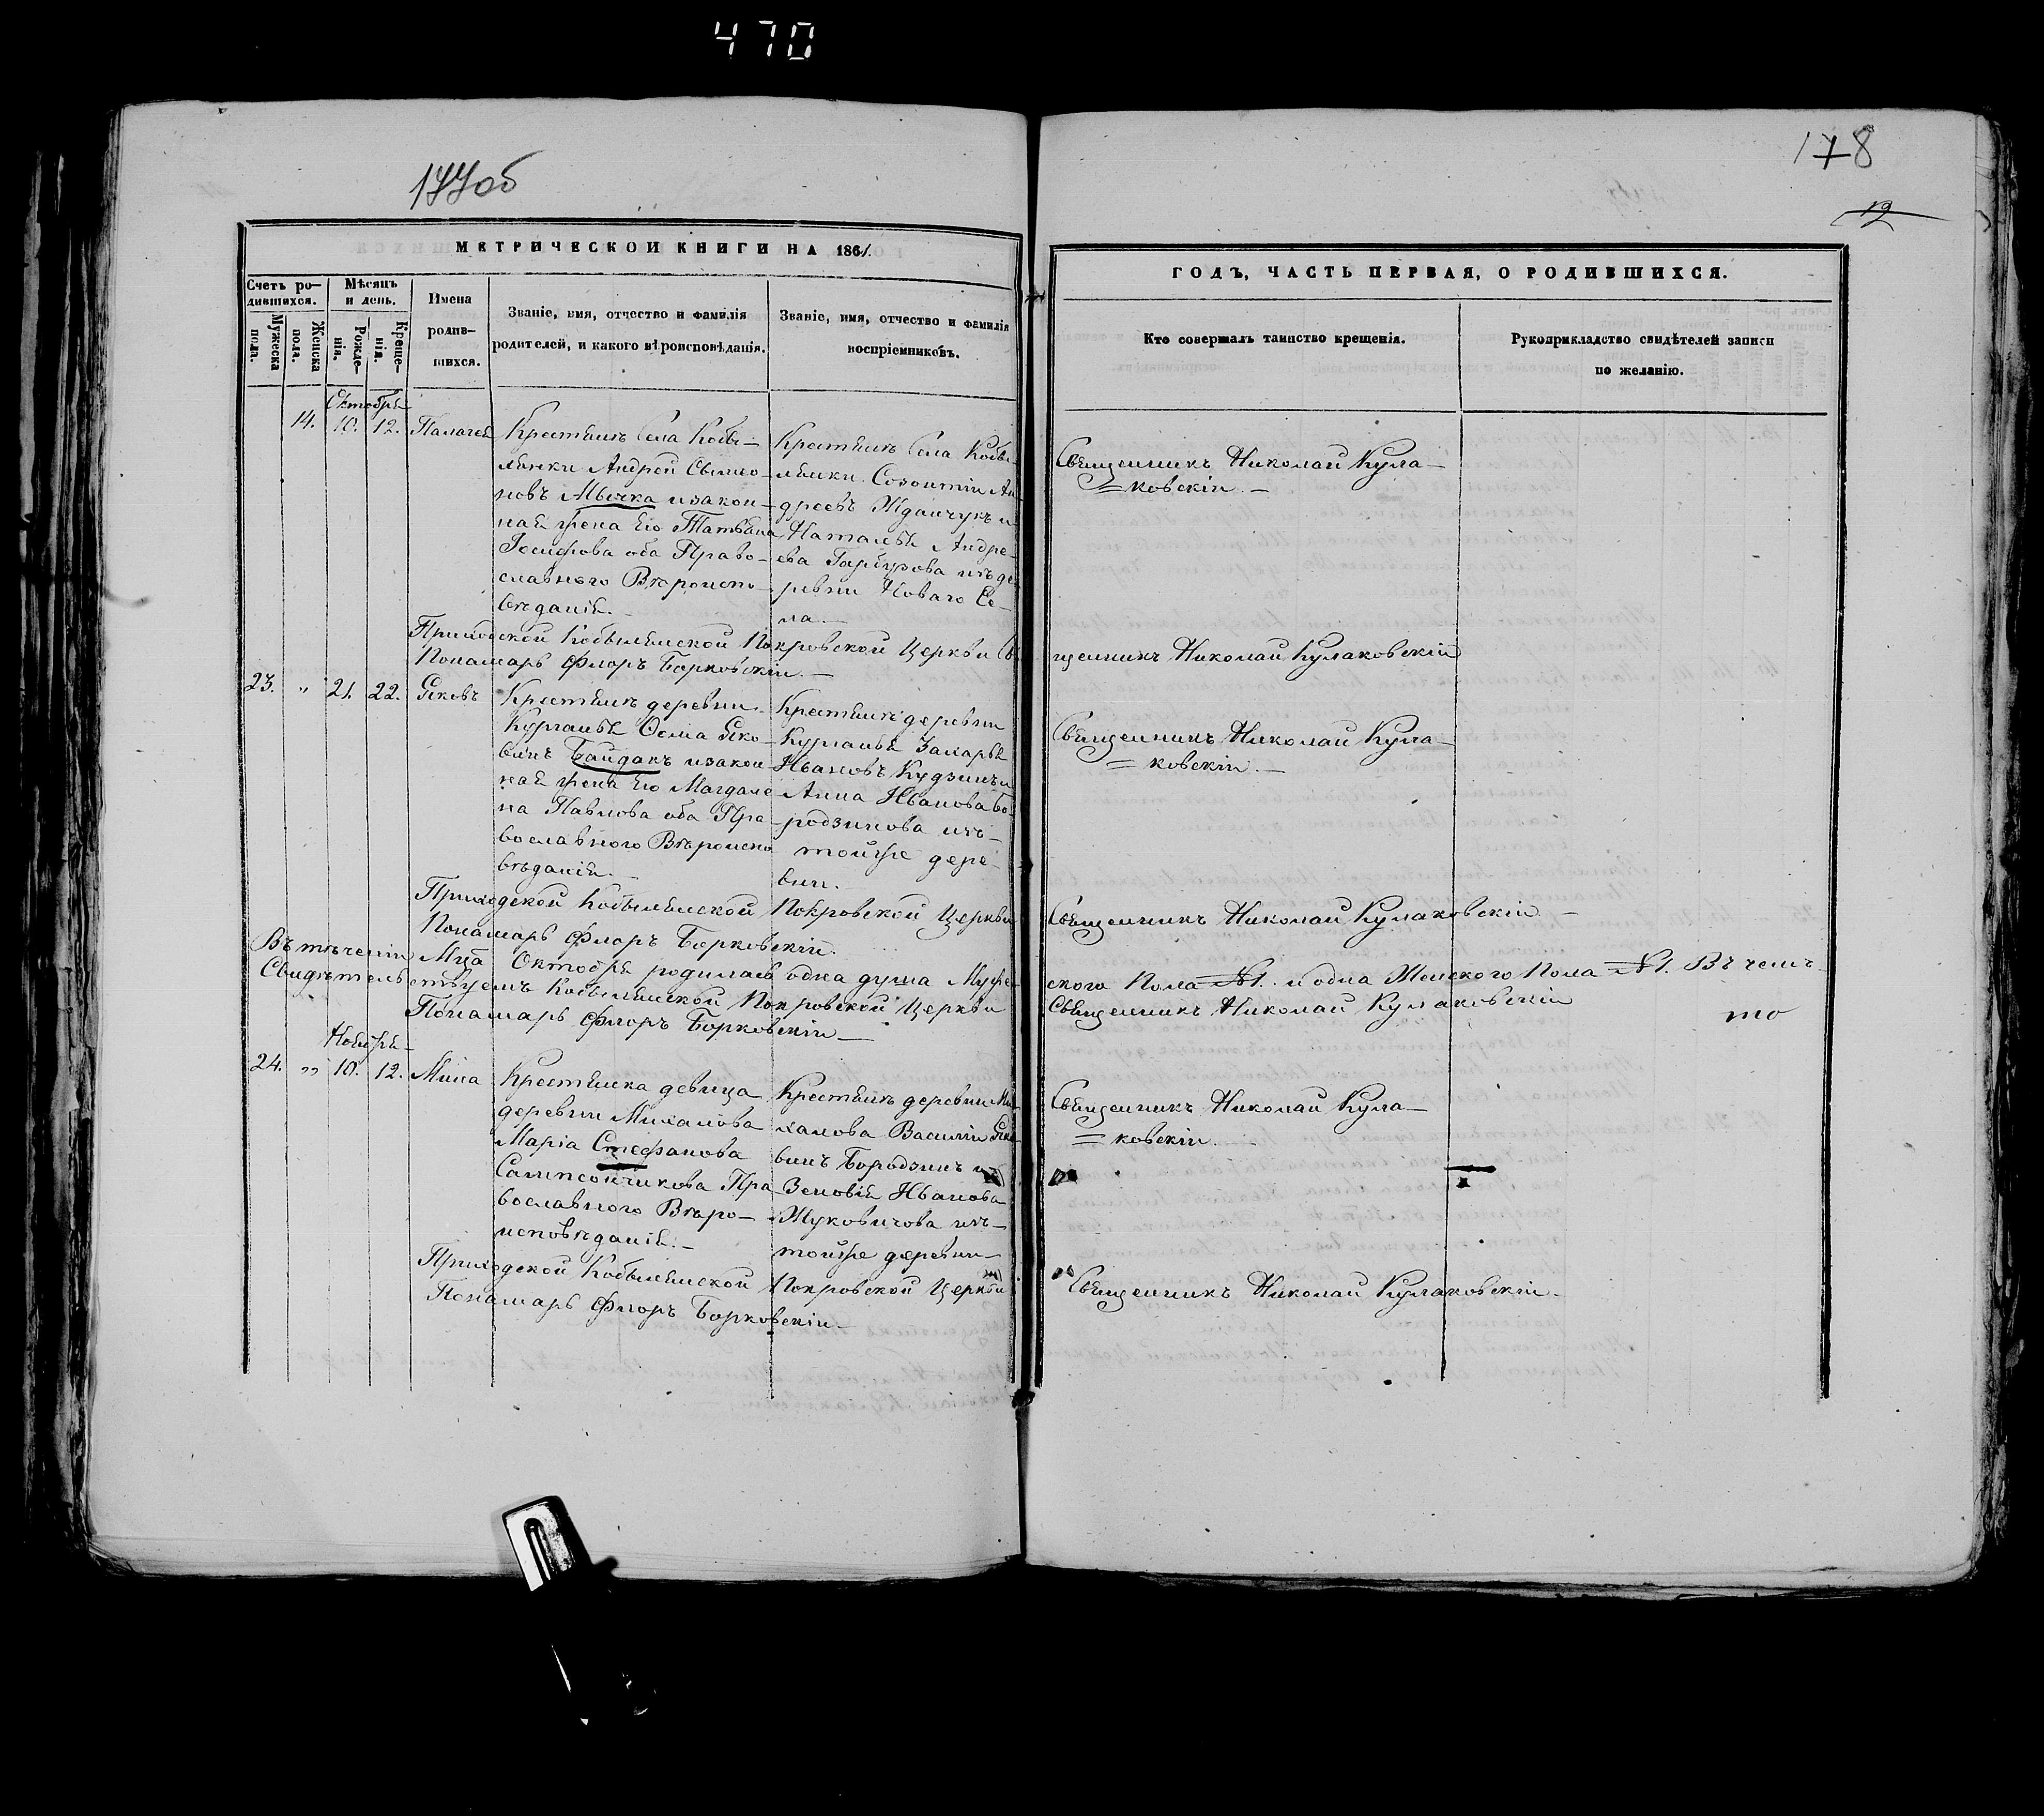 470
177об
178
12
МЕТРИЧЕСКОЙ КНИГИ НА 1861.
ГОДЪ, ЧАСТЬ ПЕРВАЯ, О РОДИВШИХСЯ.
Счетъ родившихся.
Мужеска пола.
Женска пола.
Мѣсяцъ и день.
Рожденія.
Крещенія.
Имена родившихся.
Званіе, имя, отчество и фамилія
родителей, и какого вѣроисповѣданія.
Званіе, имя, отчество и фамилія
воспріемниковъ.
Кто совершалъ таинство крещенія.
Рукоприкладство свидѣтелей записи
по желанію.
Октября
14. 10. 12. Палагея
Крестьянъ Села Кобы-
лянки Андрей Сымео-
новъ Мычка изакон-
ная жена Его Татьяна
Іосифова оба Право-
славного Вѣроиспо-
вѣданія.-
Крестьянъ Села Кобы-
лянки Созонтій Ан-
дреевъ Жданчукъ и
Наталья Андре-
ева Гарбузова изъ де-
ревни Новаго Се-
ла.-
Священникъ Николай Кула-
=ковскій.-
Приходской Кобылянской Покровской Церкви Священникъ Николай Кулаковскій
Понамарь Флоръ Борковскій.-
23. " 21. 22. Яковъ
Крестьянъ деревни
Курганья Ѳома Яко-
винъ Байдакъ изакон-
ная жена Его Магдале-
на Павлова оба Пра-
вославного Вѣроиспо-
вѣданія.-
Крестьянъ деревни
Курганья Захарья
Ивановъ Кудзинъ и
Анна Иванова Бо-
родзинова изъ-
тойже дере-
вни.-
Священникъ Николай Кула-
=ковскій.-
Приходской Кобылянской Покровской Церкви Священникъ Николай Кулаковскій-
Понамарь Флоръ Борковскій.
Въ теченіи Мца Октября родилась одна душа Мужеского Пола №1. и одна Женского Пола №1. Въ чемъ
Свидѣтельствуемъ Кобылянской Покровской Церкви Священникъ Николай Кулаковскій
то
Понамарь Флоръ Борковскій-
Ноября-
24. " 10. 12. Мина
Крестьянка девица
деревни Михалова
Марія Стефанова
Сампсончикова Пра-
вославного Вѣро-
исповѣданія.-
Крестьянъ деревни Ми-
халова Василій Яко-
винъ Бородзинъ и
Зеновія Иванова
Жуковичова изъ-
тойже деревни-
Священникъ Николай Кула-
=ковскій.-
Приходской Кобылянской Покровской Церкви Священникъ Николай Кулаковскій.
Понамарь Флоръ Борковскій-